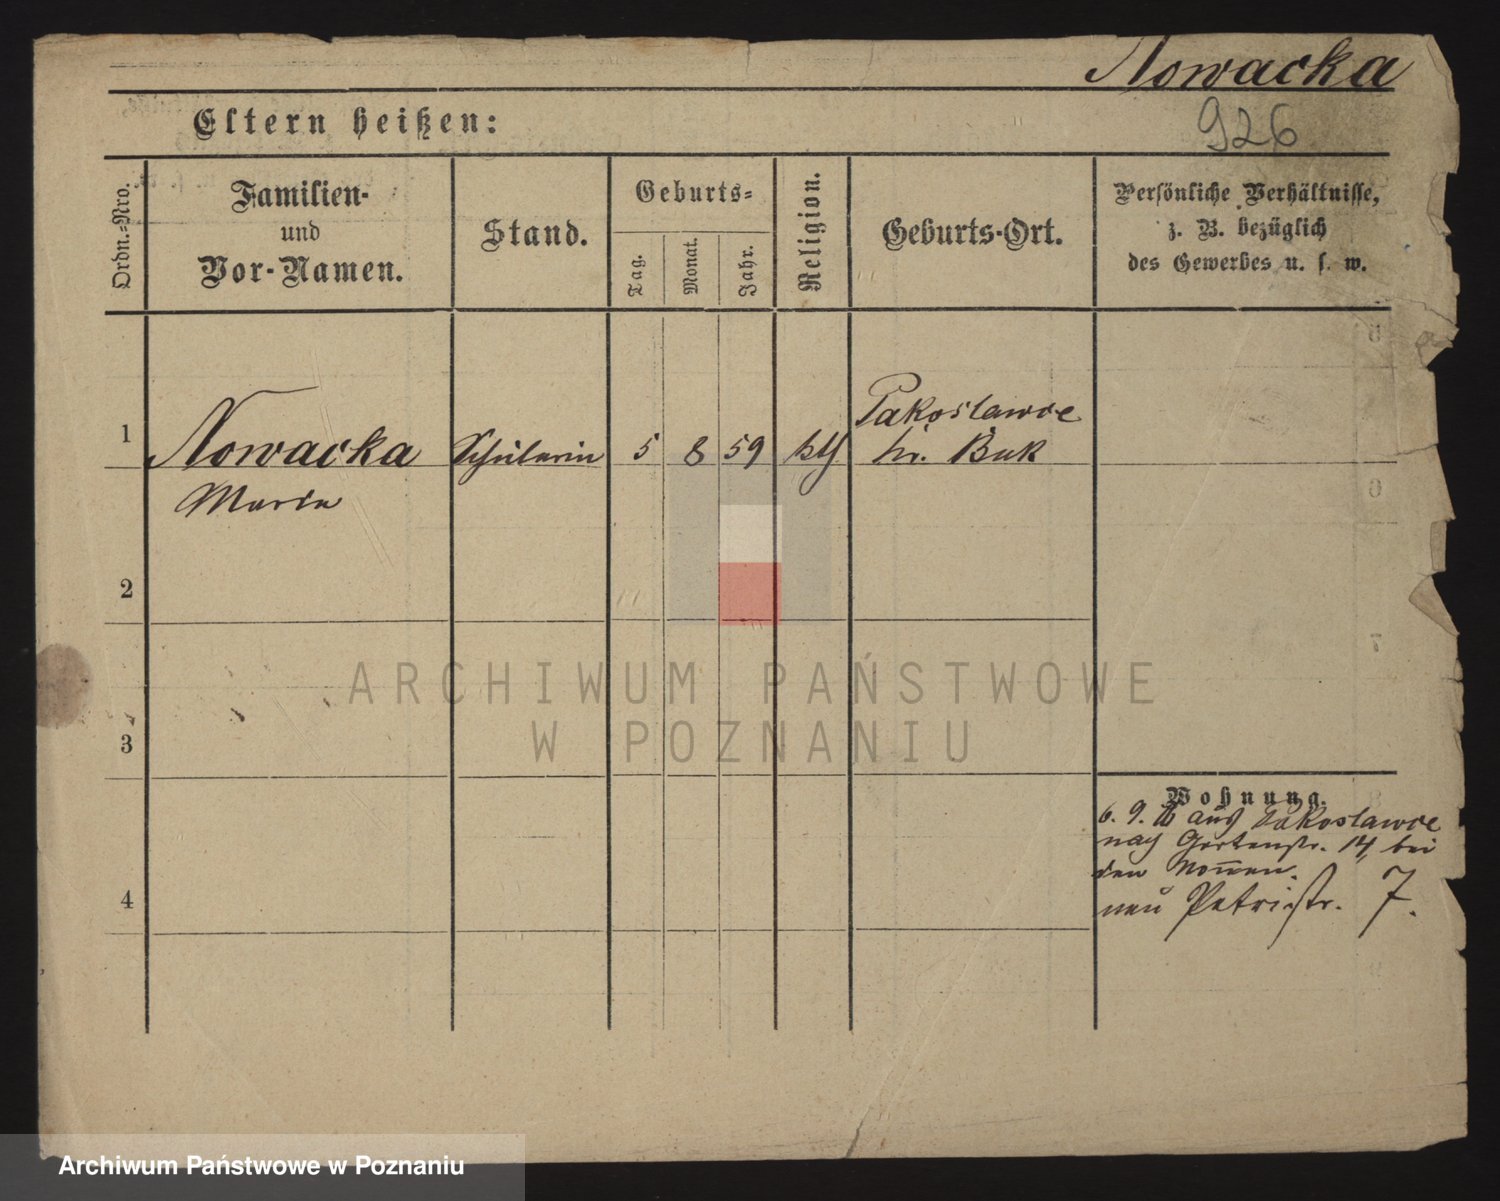 Nowacka
926
Eltern heißen:
Ordn.-Nro.
Familien-
und
Vor-Namen.
Stand.
Geburts-
Tag.
Monat.
Jahr.
Religion.
Geburts-Ort.
Persönliche Verhältnisse,
z. B. bezüglich
des Gewerbes u. s. w.
1
Nowacka
Maria
Schülerin
5
8
59
kth
Pakoslawce
kr. Buk
2
3
4
Wohnung.
6. 9. aus Pakoslawce
nach Gartenstr. 14, bei
den Nonnen.
neu Petristr. 7.
ARCHIWUM PAŃSTWOWE
W POZNANIU
Archiwum Państwowe w Poznaniu